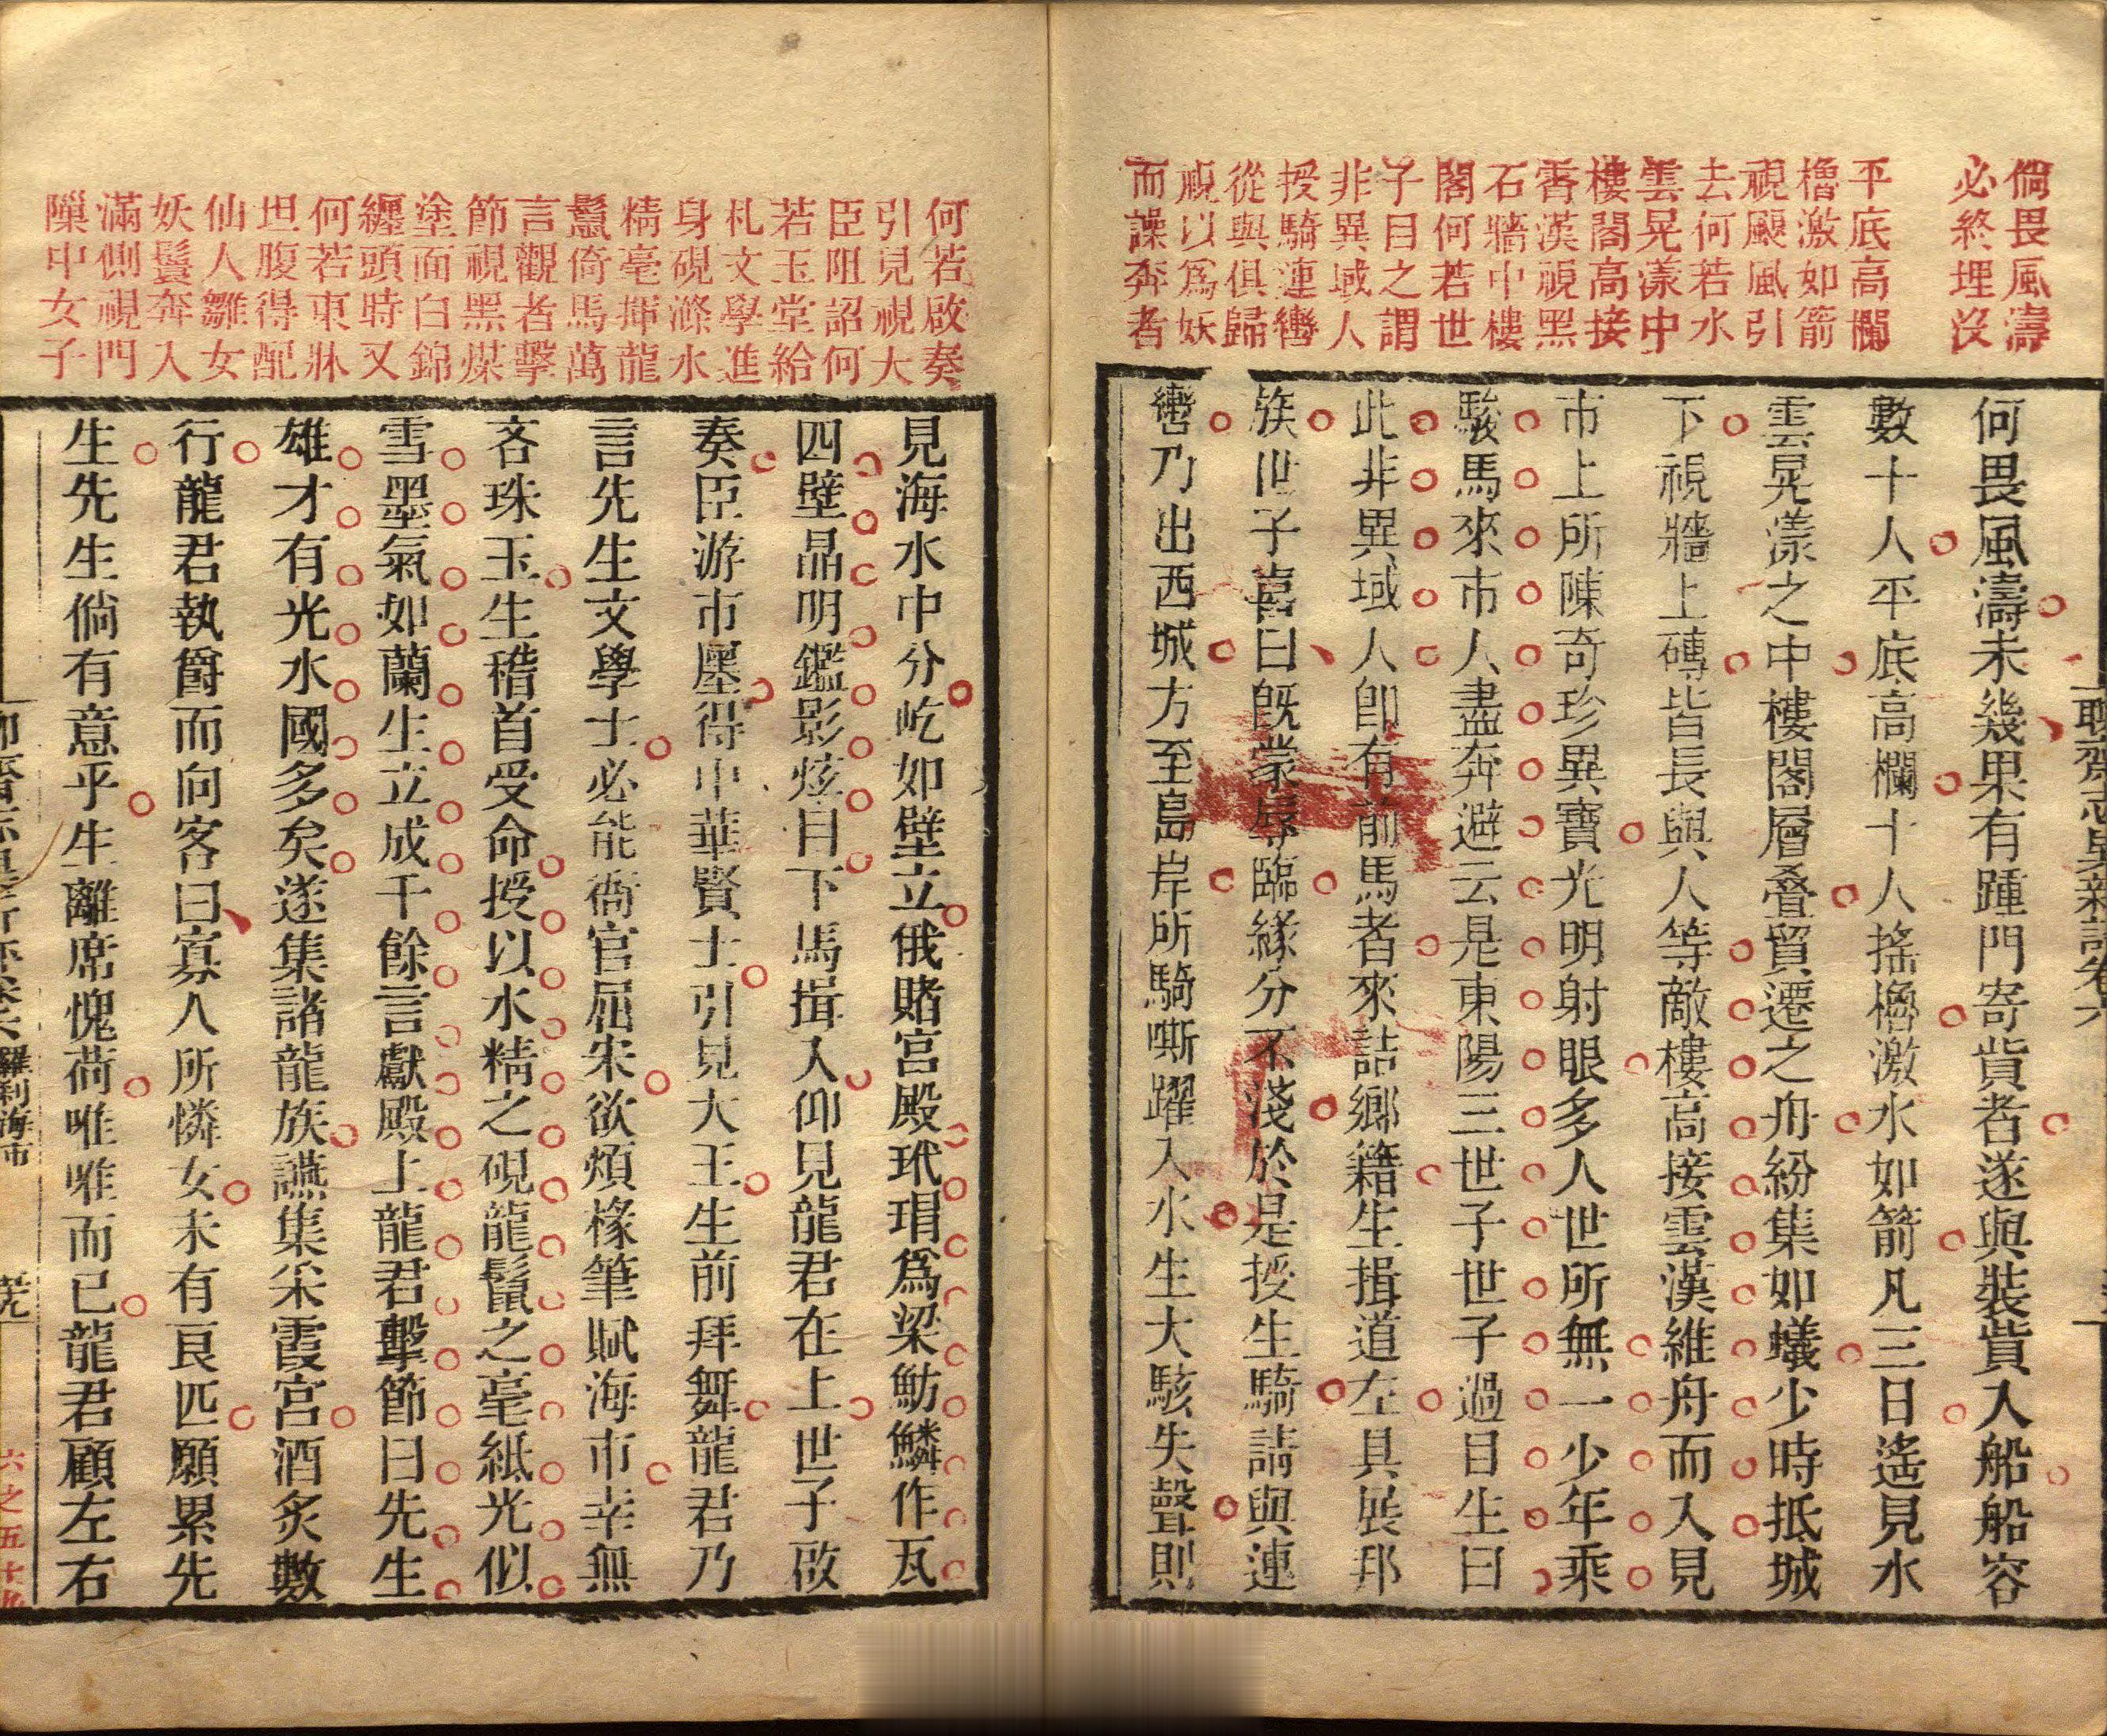 倘畏風濤
必終埋沒
平底高欄
櫓激如箭
視颶風引
去何若水
雲晃漾中
樓閣高接
霄漢視黑
石牆中樓
閣何若世
子目之謂
非異域人
授騎連轡
從與俱歸
視以爲妖
而譟奔者
何畏風濤未幾果有踵門寄貲者遂與裝貲入船船容
數十人平底高欄十人搖櫓激水如箭凡三日遙見水
雲晃漾之中樓閣層疊貿遷之舟紛集如蟻少時抵城
下視牆上磚皆長與人等敵樓高接雲漢維舟而入見
市上所陳奇珍異寶光明射眼多人世所無一少年乘
駿馬來市人盡奔避云是東陽三世子世子過目生曰
此非異域人卽有前馬者來詰鄉籍生揖道左具展邦
族世子喜曰既蒙辱臨緣分不淺於是授生騎請與連
轡乃出西城方至島岸所騎嘶躍入水生大駭失聲則
何若啟奏
引見視大
臣阻詔何
若玉堂給
札文學進
身硯滌水
精毫揮龍
鬣倚馬萬
言觀者擊
節視黑煤
塗面白錦
纏頭時又
何若東牀
坦腹得配
仙人雛女
妖鬟奔入
滿側視門
隙中女子
見海水中分屹如壁立俄睹宮殿玳瑁爲梁魴鱗作瓦
四壁晶明鑑影炫目下馬揖入仰見龍君在上世子啟
奏臣游市廛得中華賢士引見大王生前拜舞龍君乃
言先生文學士必能衙官屈宋欲煩椽筆賦海市幸無
吝珠玉生稽首受命授以水精之硯龍鬣之毫紙光似
雪墨氣如蘭生立成千餘言獻殿上龍君擊節曰先生
雄才有光水國多矣遂集諸龍族讌集采霞宮酒炙數
行龍君執爵而向客曰寡人所憐女未有良匹願累先
生先生倘有意乎生離席愧荷唯唯而已龍君顧左右
羅刹海市
六之五十九